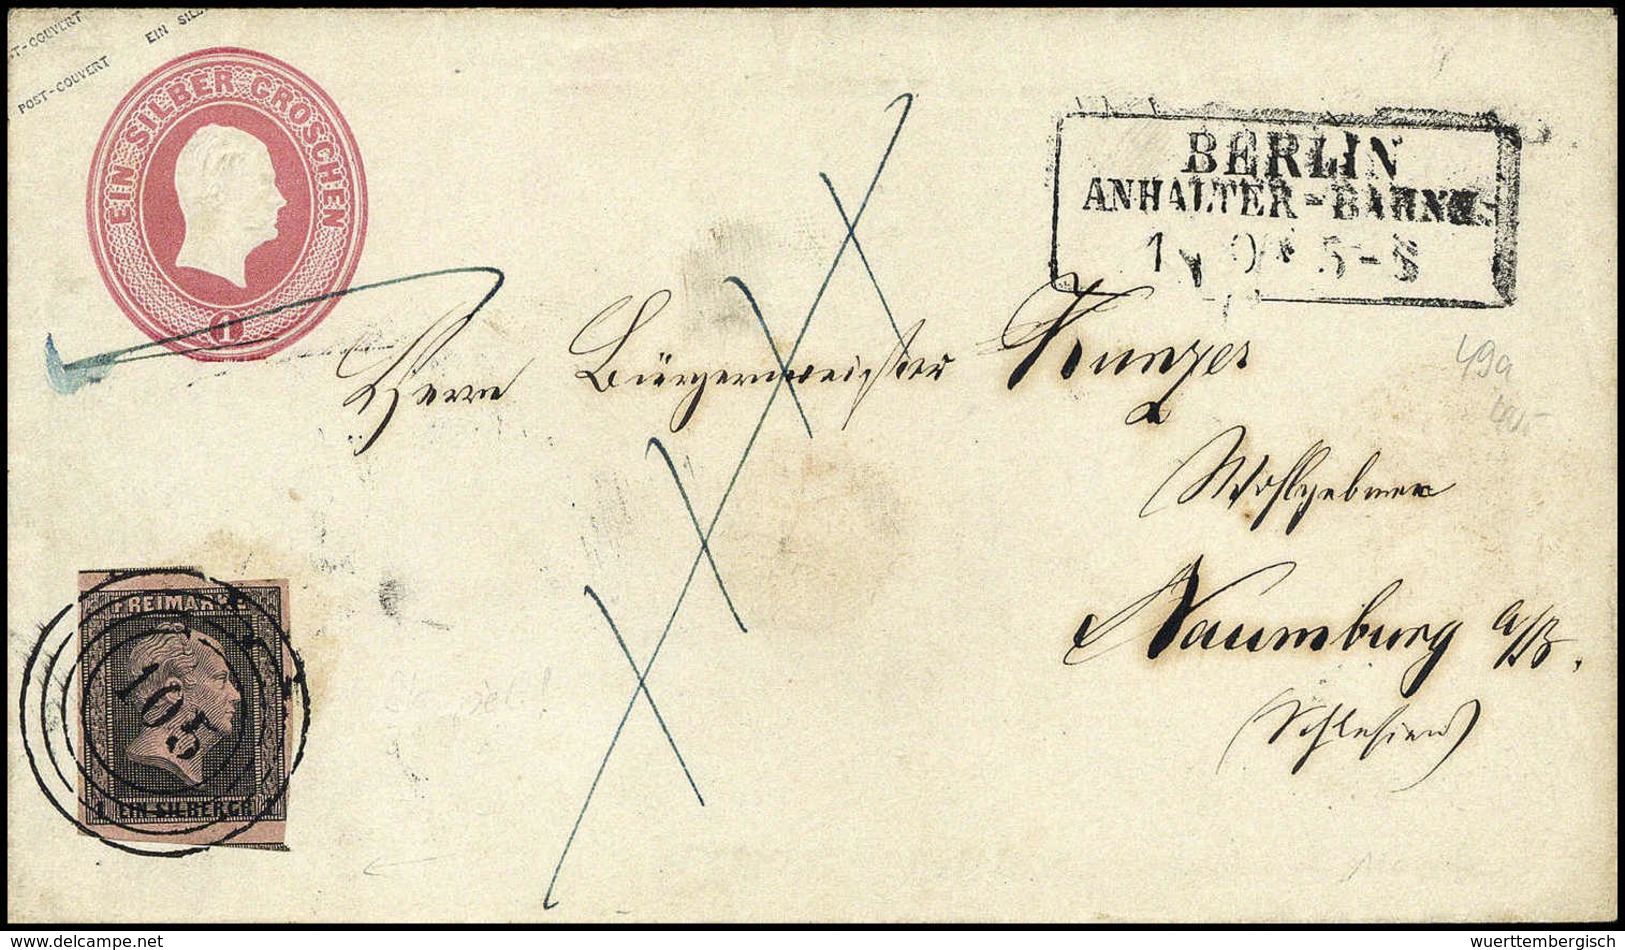 POST-COUVERT
EIN SILB
POST-COUVERT
EIN SILBER GROSCHEN
1
BERLIN
ANHALTER-BAHNH
5-8
Herrn Bürgermeister Kunzes
Wohlgeboren
Naumburg a/B.
(Schlesien)
49a
FREIMARKE
105
1 EIN SILBERGR. 1
www.delcampe.net
wuerttembergisch